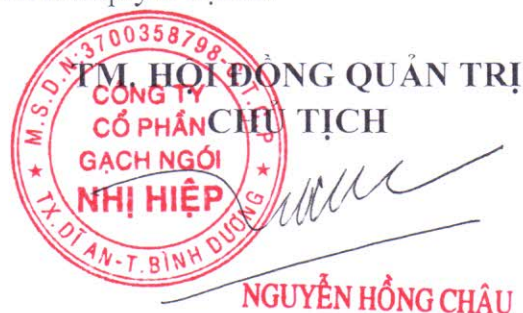 TM. HỘI ĐỒNG QUẢN TRỊ
CHỦ TỊCH
M.S.D.N:3700358798-C.T.C.P
CÔNG TY
CỔ PHẦN
GẠCH NGÓI
NHỊ HIỆP
TX.DĨ AN-T.BÌNH DƯƠNG
NGUYỄN HỒNG CHÂU